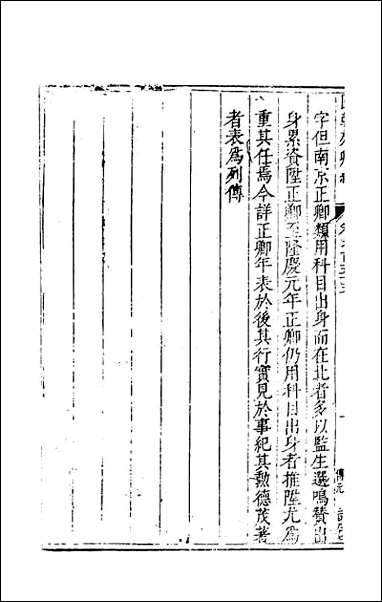 字但南京正卿類用科目出身而在北者多以監生選鳴贊出
身累資陞正卿至隆慶元年正卿仍用科目出身者推陞尤爲
重其任焉今詳正卿年表於後其行實見於事紀其勲德茂著
者表爲列傳